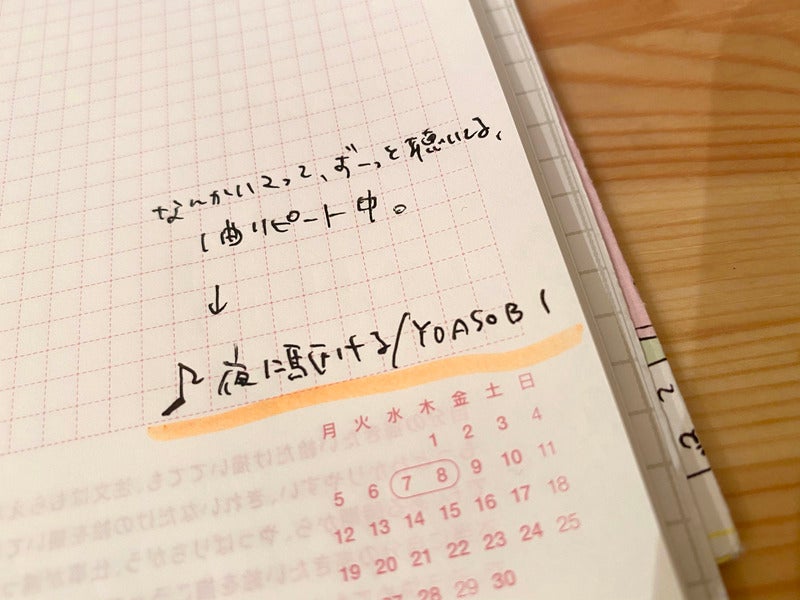 なんかハマって、ずーっと聴いてる、
1曲リピート中。
↓
♪ 夜に駆ける/YOASOBI
月 火 水 木 金 土 日
1 2 3 4
5 6 7 8 9 10 11
12 13 14 15 16 17 18
19 20 21 22 23 24 25
27 28 29 30